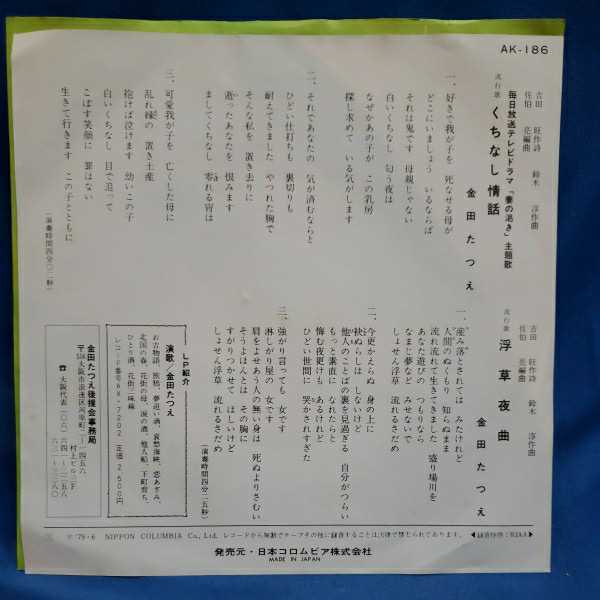 AK-186
毎日放送テレビドラマ「妻の渇き」主題歌
流行歌
くちなし情話
吉田 旺作詩
鈴木 淳作曲
佐伯 亮編曲
金田たつえ
一、好きで我が子を 死なせる母が
どこにいましょう いるならば
それは鬼です 母親じゃない
白いくちなし 匂う夜は
なぜかあの子が この乳房
探し求めて いる気がします
二、それであなたの 気が済むならと
ひどい仕打ちも 裏切りも
耐えてきました やつれた胸で
そんな私を 置き去りに
逝ったあなたを 恨みます
ましてくちなし 零れる宵は
三、可愛我が子を 亡くした母に
乱れ縁の 置き土産
抱けば泣けます 幼いこの子
白いくちなし 目で追って
こぼす笑顔に 罪はない
生きて行きます この子とともに
(演奏時間四分〇二秒)
流行歌
浮草夜曲
吉田 旺作詩
鈴木 淳作曲
佐伯 亮編曲
金田たつえ
一、産み落とされては みたけれど
人間のぬくもり 知らぬまま
流れ流れて生きてきました 盛り場川を
あなた遊びの つもりなら
なまじ夢など みせないで
しょせん浮草 流れるさだめ
二、今更かえらぬ 身の上に
袂ぬらしは しないけど
他人のことばの裏を見過ぎる 自分がつらい
もっと素直に なれたらと
悔む夜更けも あるけれど
ひどい世間に 哭かされすぎた
三、強がり言っても 女です
淋しがり屋の 女です
肩をよせあう人の無い身は 死ぬよりさむい
そうよほんとは その胸に
すがりつかせて ほしいけど
しょせん浮草 流れるさだめ
(演奏時間四分二五秒)
LP紹介
演歌/金田たつえ
お吉物語、旅愁、夢追い酒、哀愁海峡、恋あざみ、
北国の春、花街の母、涙の酒、他人船、下町育ち、
ひとり酒、花街三味線
レコード番号GX-7202 定価2,500円
金田たつえ後援会事務局
〒556大阪市浪速区河原町二-一四五六
村上ビル三F
☎ 大阪代表(〇六)六四一-二二五八
六三二-三三八〇
Ⓟ '79・6 NIPPON COLUMBIA Co., Ltd. レコードから無断でテープその他に録音することは法律で禁じられております。
発売元・日本コロムビア株式会社
MADE IN JAPAN